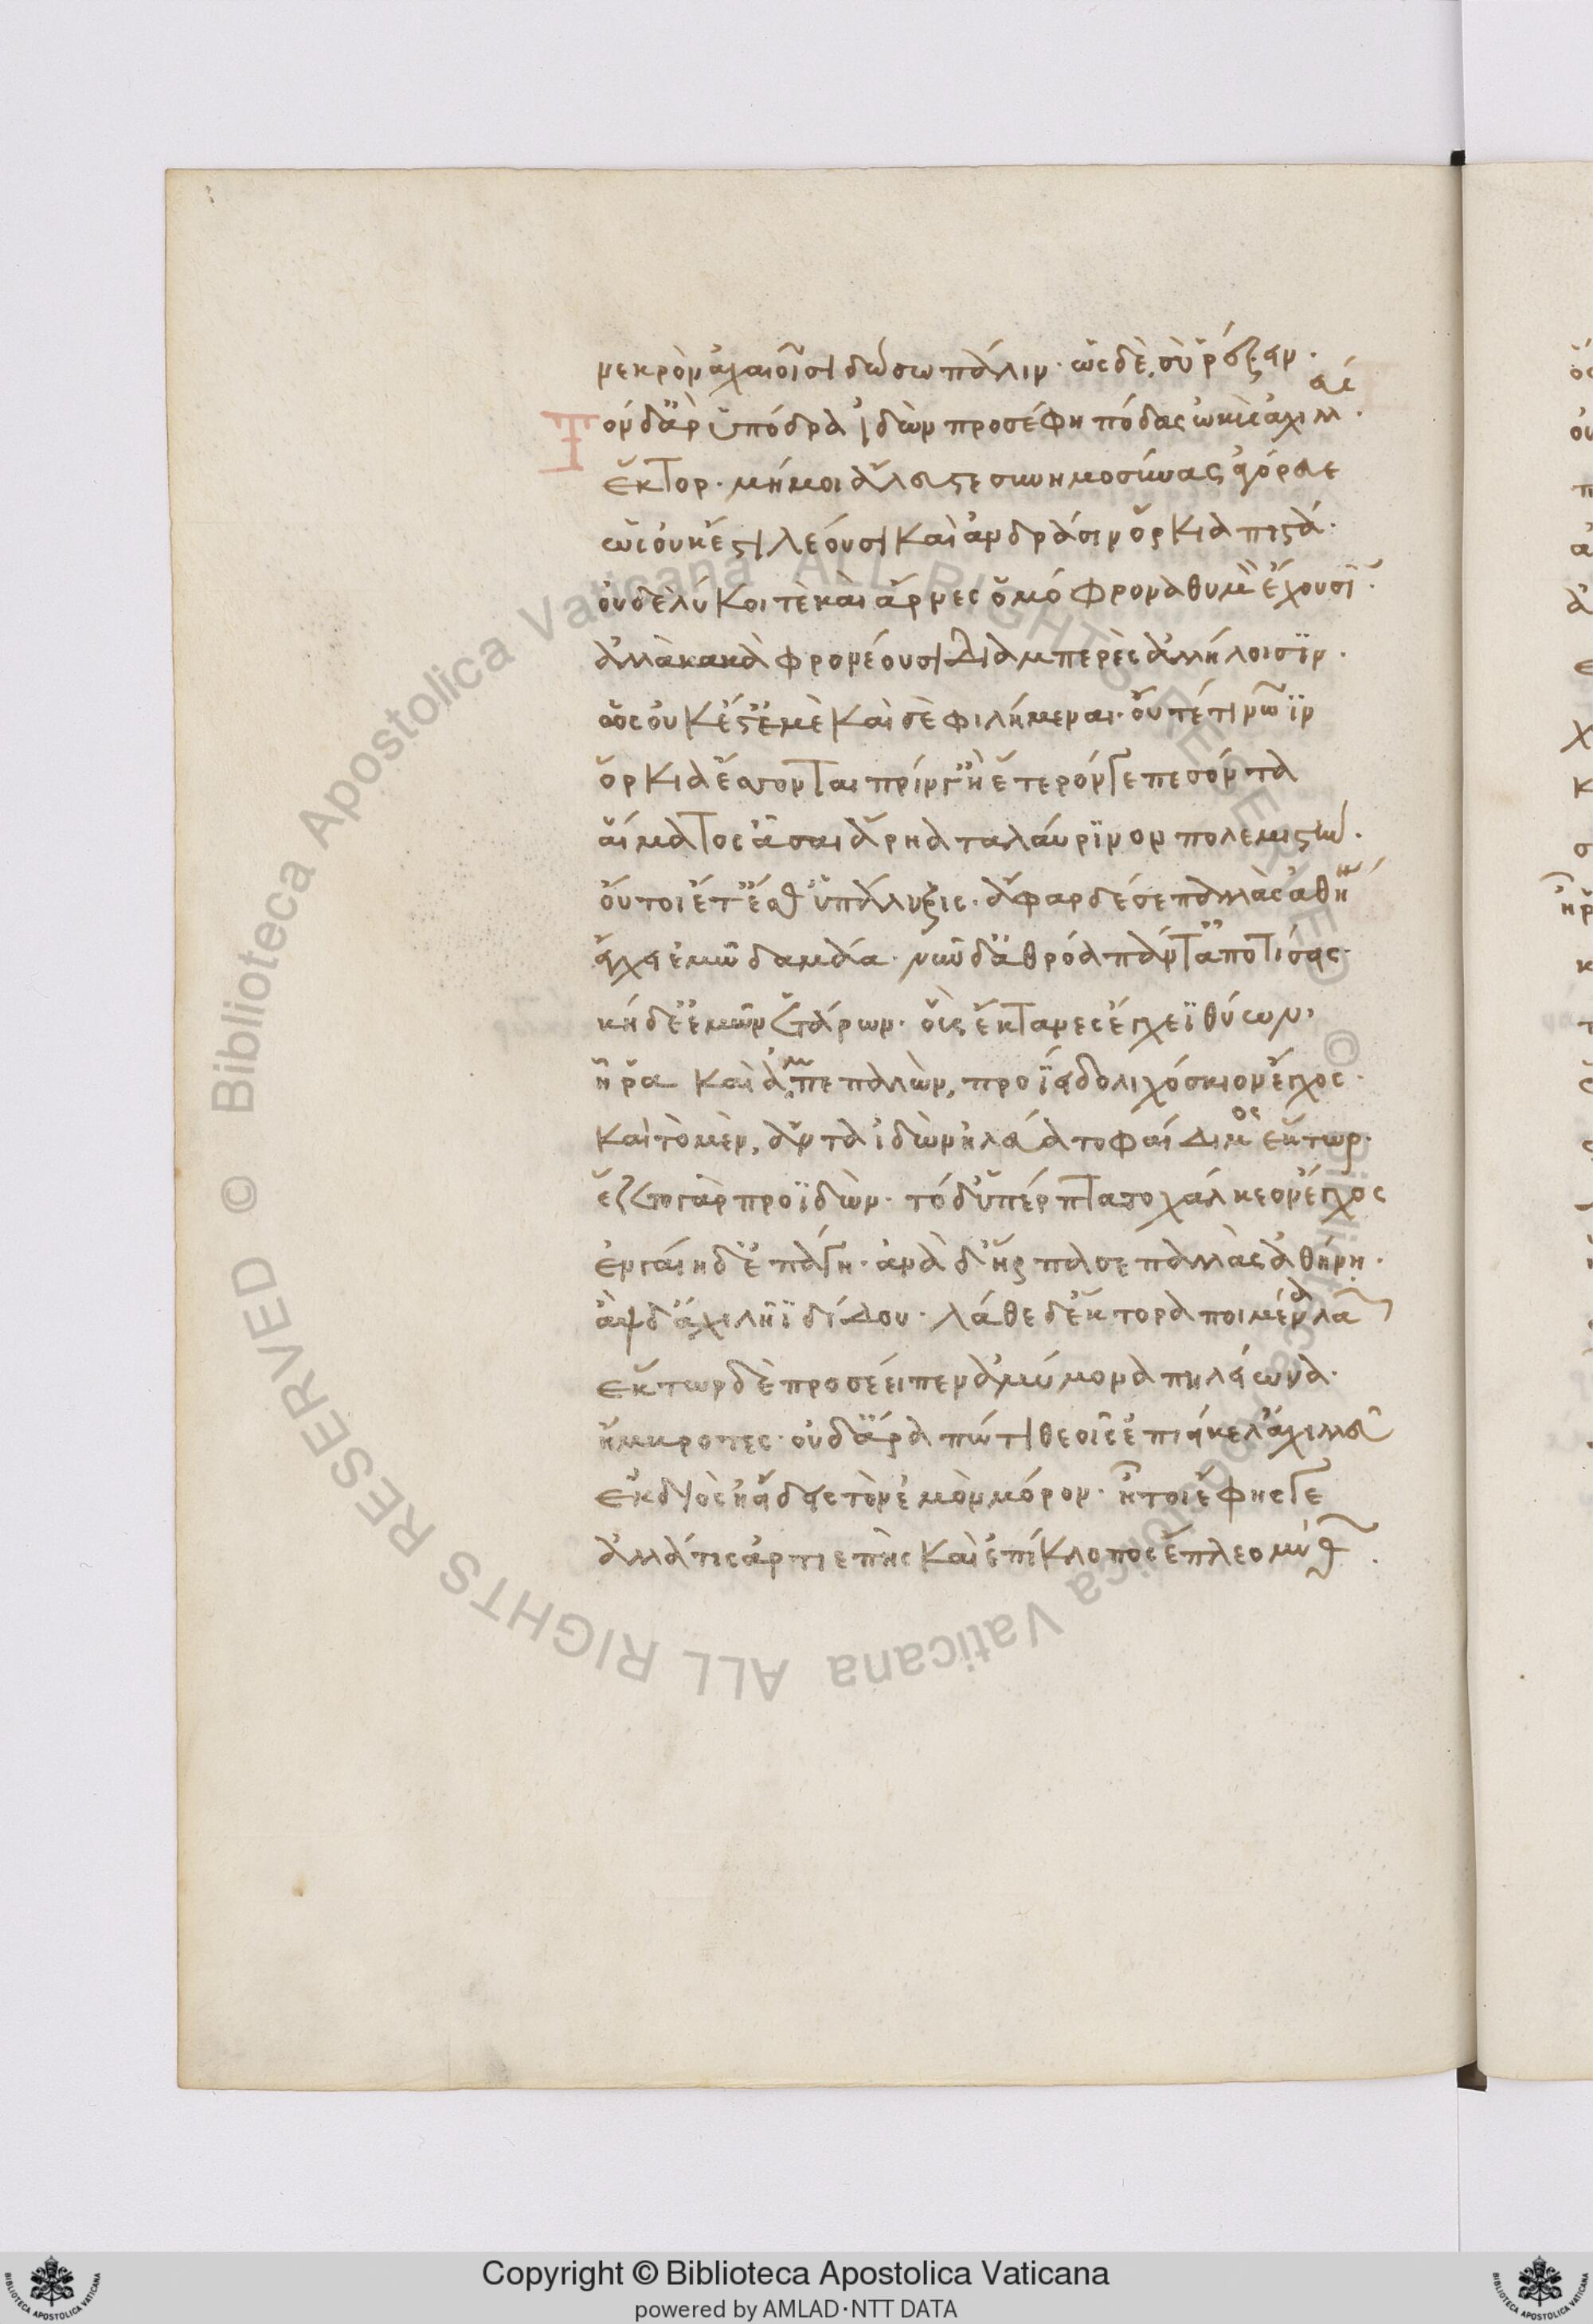 νεκρὸν ἀχαιοῖσι δώσω πάλιν· ὣς δὲ σὺ ῥέζειν·
Τὸν δ' ἄρ ὑπόδρα ἰδὼν προσέφη πόδας ὠκὺς ἀχιλλεύ·
ἕκτορ· μή μοι ἄλαστε συνημοσύνας ἀγόρευε
ὡς οὐκ ἔστι λέουσι καὶ ἀνδράσιν ὅρκια πιστά·
οὐδὲ λύκοι τὲ καὶ ἄρνες ὁμόφρονα θυμὸν ἔχουσιν·
ἀλλὰ κακὰ φρονέουσι διαμπερὲς ἀλλήλοισϊν·
ὣς οὐκ ἔστ' ἐμὲ καὶ σὲ φιλήμεναι· οὔτέ τι νῶϊν
ὅρκια ἔσσονται πρίν γ' ἢ ἕτερόν γε πεσόντα
αἵματος ἆσαι ἄρηα ταλαύρϊνον πολεμιστήν·
οὔ τοι ἔτ' ἔσθ' ὑπάλυξις· ἄφαρ δέ σε παλλὰς ἀθήνη
ἔγχει ἐμῶ δαμάα· νῦν δ' ἀθρόα πάντ' ἀποτίσεις·
κήδε' ἐμῶν ἑτάρων· οὓς ἔκτανες ἔγχεϊ θύων·
ἦ ῥα καὶ ἀμπεπαλὼν, προΐει δολιχόσκιον ἔγχος·
καὶ τὸ μὲν, ἄντα ἰδὼν ἠλεύατο φαίδιμος ἕκτωρ·
ἕζετο γὰρ προϊδὼν· τὸ δ' ὑπέρπτατο χάλκεον ἔγχος
ἐν γαίη δ' ἐπάγη· ἀνὰ δ' ἥρπασε παλλὰς ἀθήνη·
ἂψ δ' ἀχιλῆϊ δίδου· λάθε δ' ἕκτορα ποιμένα λαῶν
ἕκτωρ δὲ προσέειπεν ἀμύμονα πηλείωνα·
ἤμβροτες· οὐδ' ἄρα πώ τι θεοῖς ἐπιείκελ' ἀχιλλεῦ
ἐκ διὸς ἠείδεις τὸν ἐμὸν μόρον· ἦ τοι ἔφης γε
ἀλλά τις ἀρτιεπὴς καὶ ἐπίκλοπος ἔπλεο μύθων·
Copyright © Biblioteca Apostolica Vaticana
powered by AMLAD·NTT DATA
© Biblioteca Apostolica Vaticana ALL RIGHTS RESERVED © Biblioteca Apostolica Vaticana ALL RIGHTS RESERVED